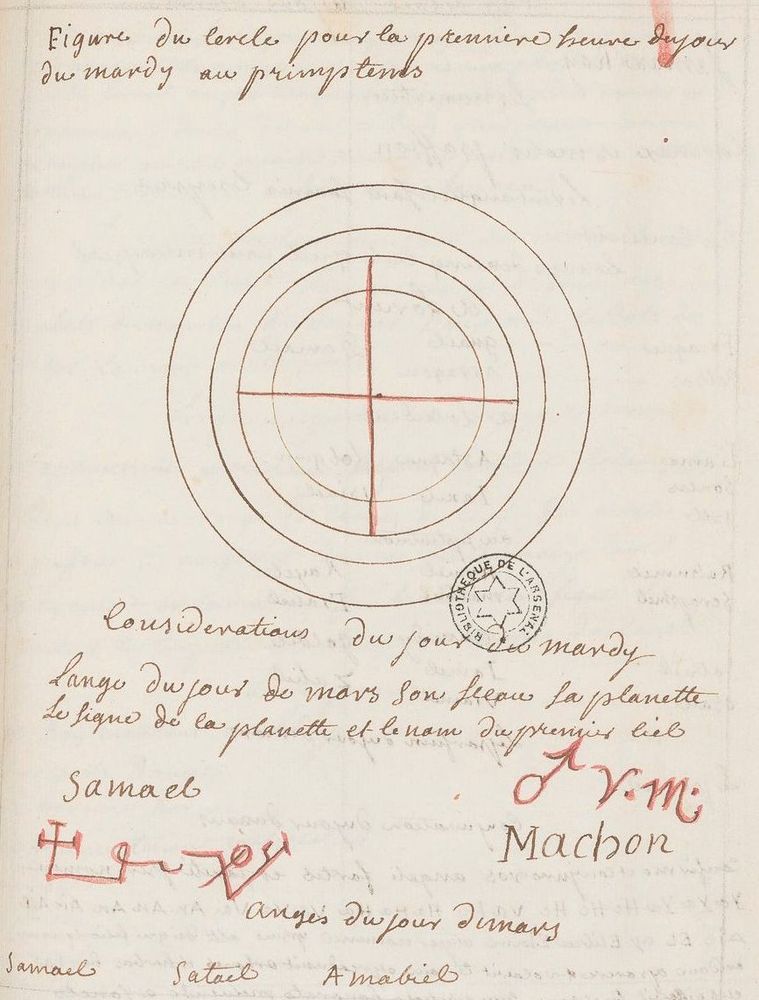 Figure du cercle pour la premiere heure dujour
du mardy au primptems
BIBLIOTHEQUE DE L'ARSENAL
Considerations du jour du mardy
Lange du jour de mars son sceau sa planette
Le signe de la planette et le nom du premier ciel
Samael
♂ V. M.
Machon
anges du jour de mars
Samael Satael Amabiel